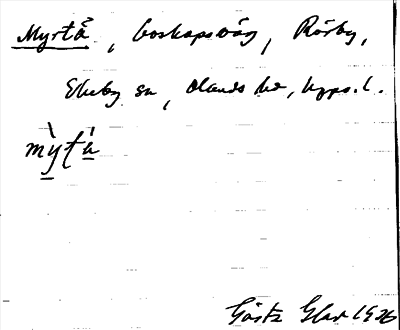 Myrtå, boskapsväg, Rörby,
Ekeby sn, Olands hd, Upps.l.
mỳtá
Gösta 1926